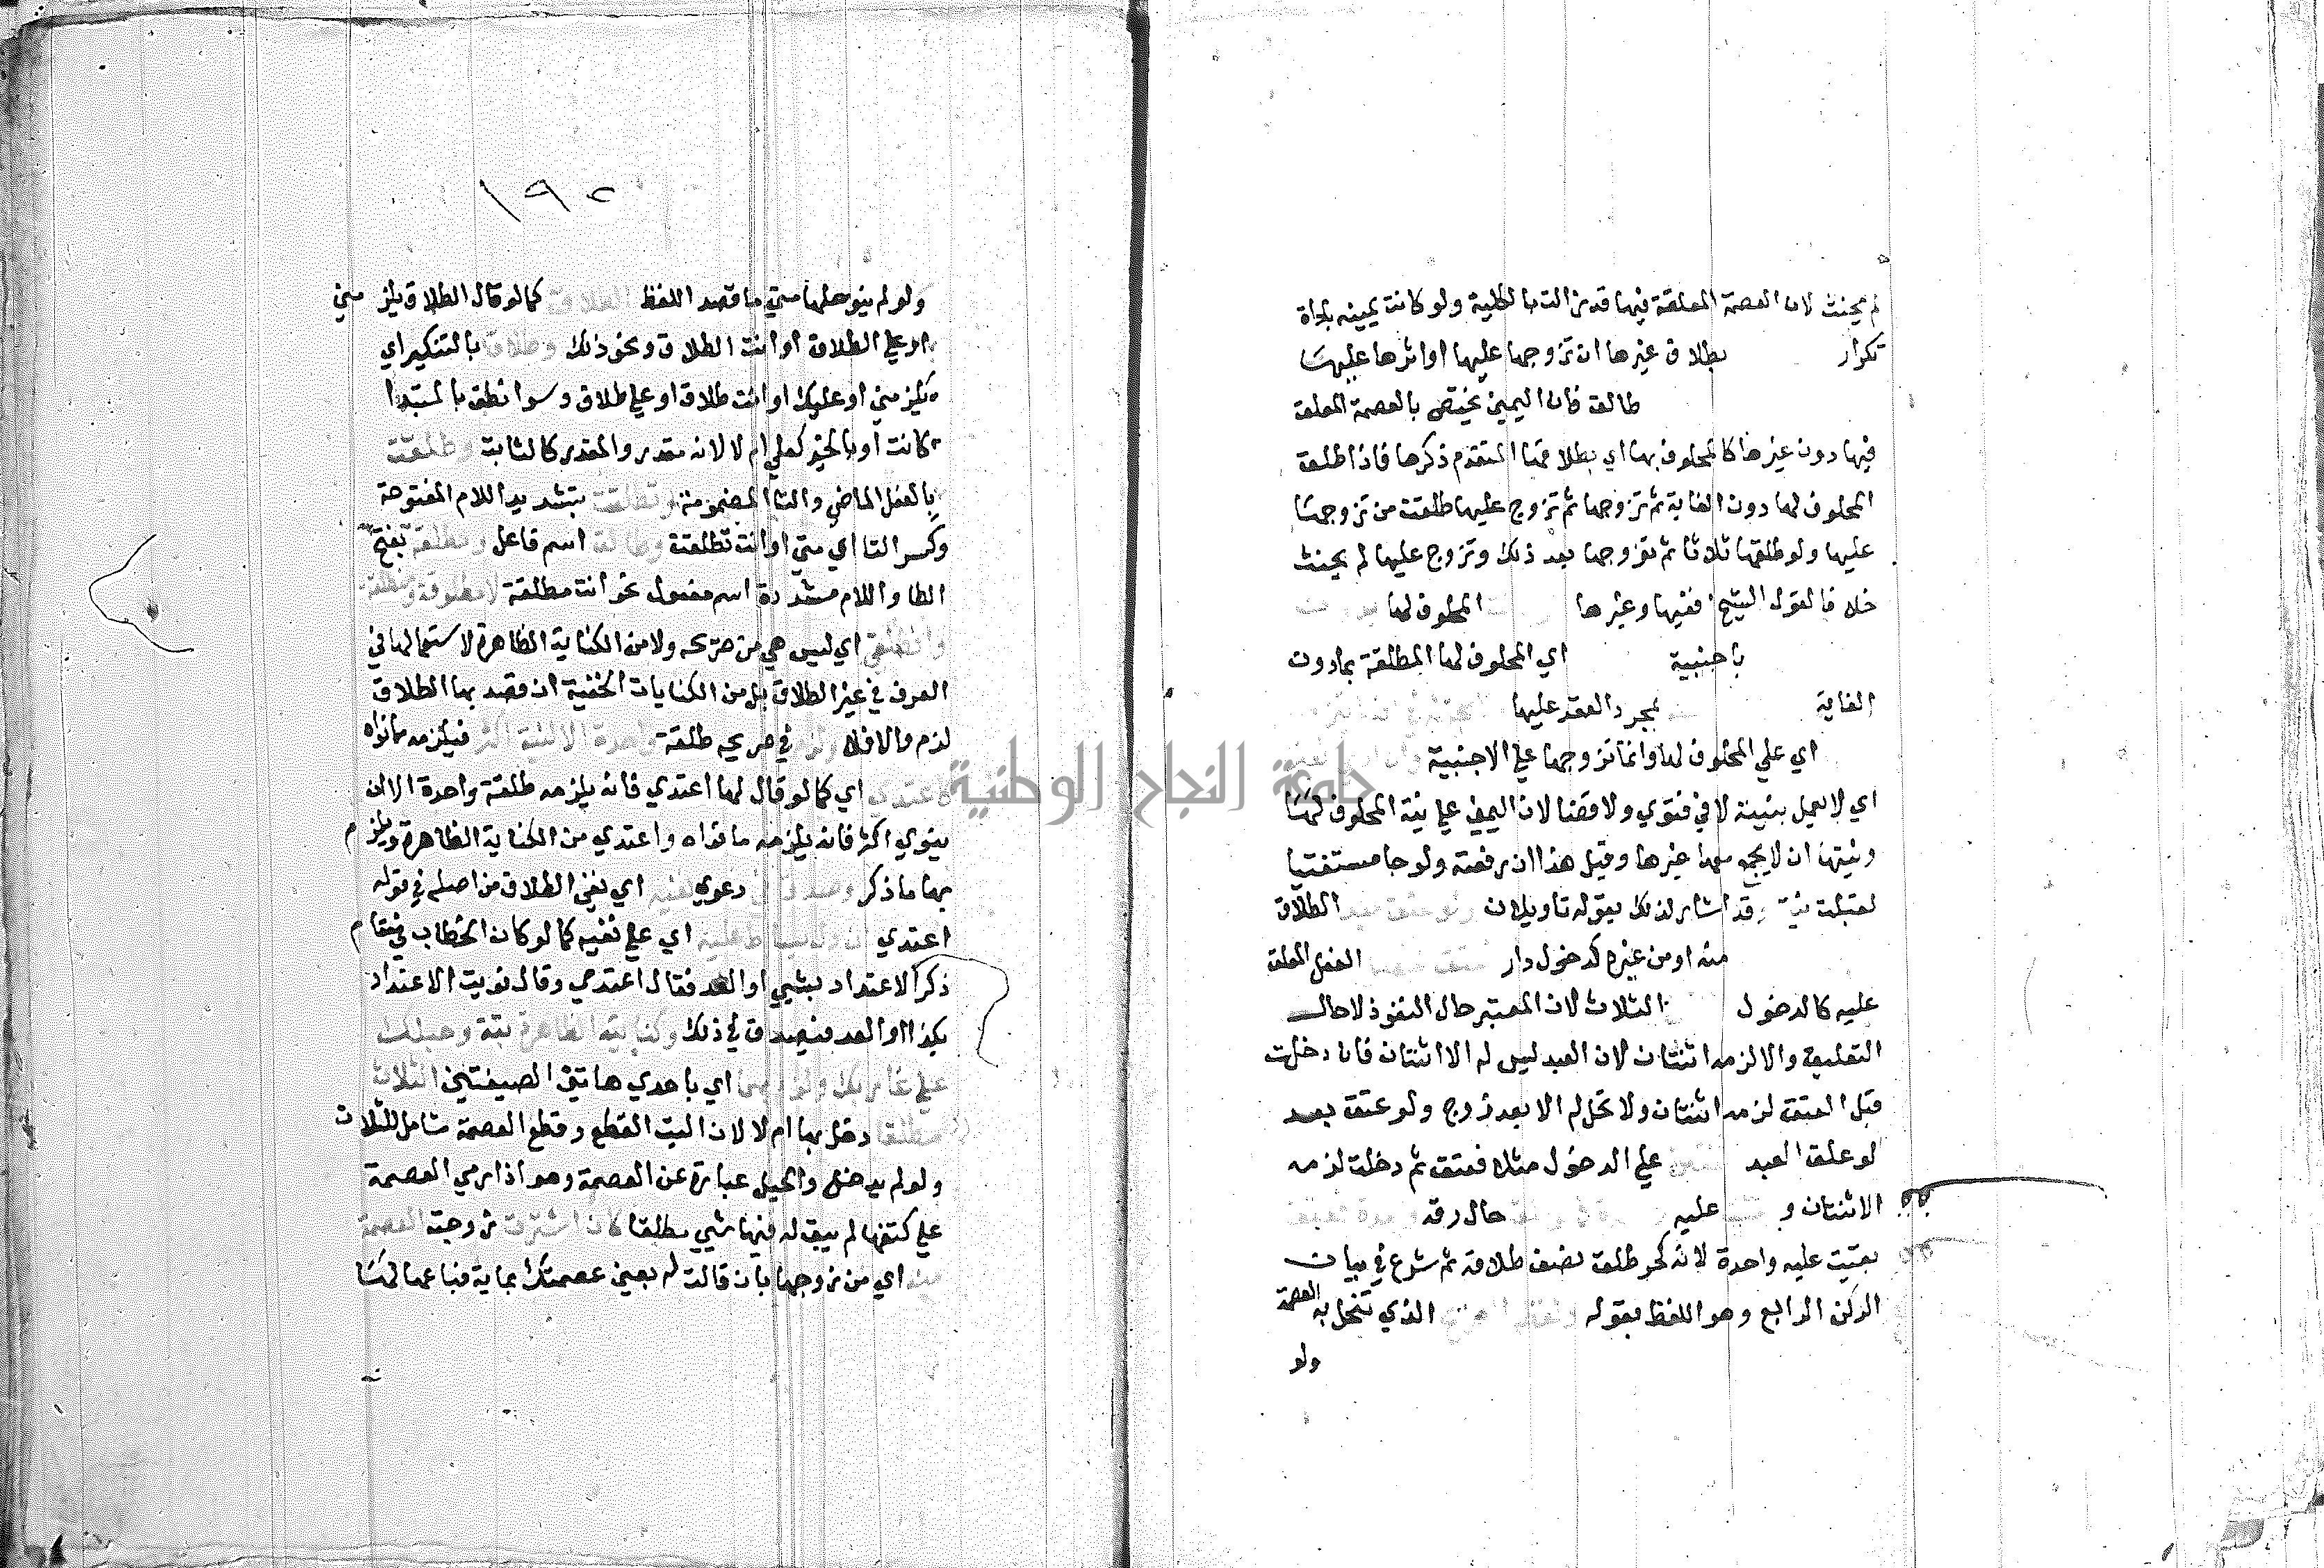 لم يحنث لان العصمة المعلقة فيها قد زالت بالكلية ولو كانت يمينه باداة
تكرار بطلاق غيرها ان تزوجها عليها او اثرها عليها
طالق فان اليمين يختص بالعصمة المعلق
فيها دون غيرها كالمحلوف بها اي بطلاقها المتقدم ذكرها فاذا طلق
المحلوف لها دون الغاية ثم تزوجها ثم تزوج عليها طلقت من تزوجها
عليها ولو طلقها ثلاثا ثم تزوجها بعد ذلك وتزوج عليها لم يحنث
خلافا لقول الشيخ ففيها وغيرها المحلوف لها
باجنبية اي المحلوف لها المطلقة بمادون
الغاية بمجرد العقد عليها
اي علي المحلوف لها وانما تزوجها علي الاجنبية
اي لا يعمل بنيته لا في فتوي ولا قضا لان اليمين علي نية المحلوف لها
ونيتها ان لا يجمع معها غيرها وقيل هذا ان رفعته ولو جا مستفتيا
لقبلت نيته وقد اشار لذلك بقوله تاويلان الطلاق
منه او من غيره كدخول دار الفعل المعلق
عليه كالدخول الثلاث لان المعتبر حال النفوذ لا حال
التعليق والا لزمه اثنتان لان العبد ليس له الا اثنتان فان دخلت
قبل العتق لزمه اثنتان ولا تحل له الا بعد زوج ولو عتق بعد
لو علق العبد علي الدخول مثلا فعتق ثم دخلت لزمه
الاثنتان و عليه حال رقه
بقيت عليه واحدة لانه كحر طلق نصف طلاقه ثم شرع في بيان
الركن الرابع وهو اللفظ بقوله الذي تنحل به العصمة
ولو
١٩٢
ولو لم ينو حلها متي ما قصد اللفظ الطلاق كما لو قال الطلاق يلزمني
او علي الطلاق او انت الطلاق ونحو ذلك وطلاق بالتنكير اي
يلزمني او عليك او انت طلاق او علي طلاق وسوا نطق بالمبتدا
كانت او بالخبر كعلي ام لا لانه مقدر والمقدر كالثابت وطلقت
بالفعل الماضي والتا المضمومة وتطالقت بتشديد اللام المفتوحة
وكسر التا اي مني او انت تطلقت وطالق اسم فاعل ومطلقة بفتح
الطا واللام مشددة اسم مفعول نحو انت مطلقة لا مطلوقة
وانطلقي اي ليس هي من صريحه ولا من الكناية الظاهرة لاستعمالها في
العرف في غير الطلاق بل من الكنايات الخفية ان قصد بها الطلاق
لزم والا فلا ولزم في صريحه طلقة واحدة الا لنية اكثر فيلزمه ما نواه
كاعتدي اي كما لو قال لها اعتدي فانه يلزمه طلقة واحدة الا ان
ينوي اكثر فانه يلزمه ما نواه واعتدي من الكناية الظاهرة ويلزم
بها ما ذكر وصدق في دعوي نفيه اي نفي الطلاق من اصله في قوله
اعتدي ان دل بساط عليه اي علي نفيه كما لو كان الخطاب في مقام
ذكر الاعتداد بشيي او العد فقال اعتدي وقال نويت الاعتداد
بكذا او العد فيصدق في ذلك وكنايته الظاهرة بتة وحبلك
علي غاربك ولزم بهما اي باحدي هاتين الصيغتين الثلاث
مطلقا دخل بها ام لا لان البت القطع وقطع العصمة شامل للثلاث
ولو لم يدخل والحبل عبارة عن العصمة وهو اذا رمي العصمة
علي كتفها لم يبق له فيها شيي مطلقا كان اشترت زوجة العصمة
منه اي من زوجها بان قالت له بعني عصمتك بماية فباعها لها